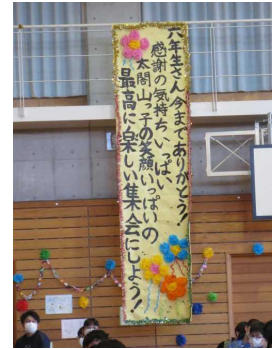 六年生さん今までありがとう!
感謝の気持ちいっぱい
太閤山っ子の笑顔いっぱいの
最高に楽しい集会にしよう!